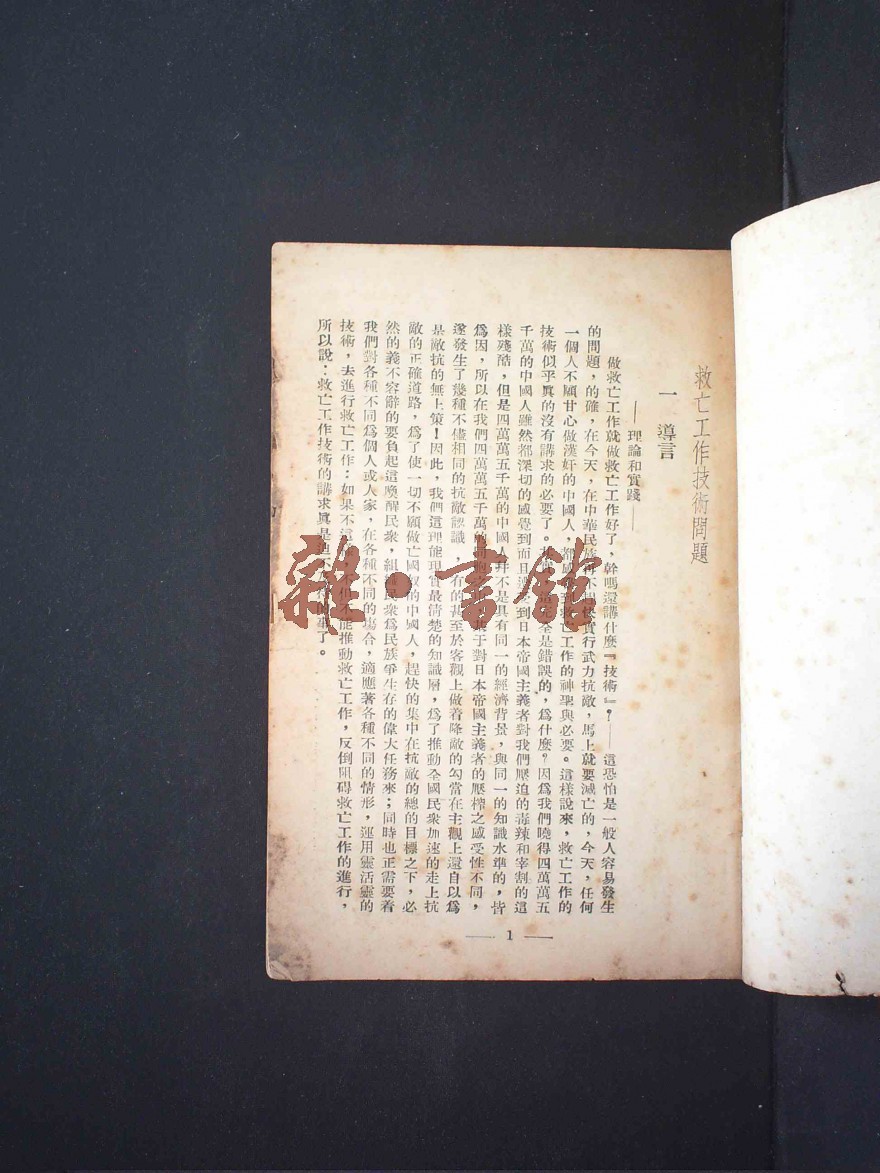 救亡工作技術問題
一 導言
——理論和實踐——
做救亡工作就做救亡工作好了，幹嗎還講什麼『技術』？——這恐怕是一般人容易發生
的問題，的確，在今天，在中華民族再不趕快實行武力抗敵，馬上就要滅亡的，今天，任何
一個人不願甘心做漢奸的中國人，都感到救亡工作的神聖與必要。這樣說來，救亡工作的
技術似乎眞的沒有講求的必要了。完全是錯誤的，爲什麼？因爲我們曉得四萬萬五
千萬的中國人雖然都深切的感覺到而且遭受到日本帝國主義者對我們壓迫的毒辣和宰割的這
樣殘酷，但是四萬萬五千萬的中國人幷不是具有同一的經濟背景，與同一的知識水準的，皆
爲因，所以在我們四萬萬五千萬的同胞之于對日本帝國主義者的壓榨之感受性不同，
遂發生了幾種不儘相同的抗敵認識，有的甚至於客觀上做着降敵的勾當在主觀上還自以爲
是敵抗的無上策！因此，我們這理能現實最清楚的知識層，爲了推動全國民衆加速的走上抗
敵的正確道路，爲了使一切不願做亡國奴的中國人，趕快的集中在抗敵的總的目標之下，必
然的義不容辭的要負起這喚醒民衆，組織民衆爲民族爭生存的偉大任務來；同時也正需要着
我們對各種不同爲個人或人家，在各種不同的塲合，適應著各種不同的情形，運用靈活靈的
技術，去進行救亡工作：如果不這不但不能推動救亡工作，反倒阻碍救亡工作的進行，
所以說：救亡工作技術的講求眞是迫不的事了。
— 1 —
雜·書館